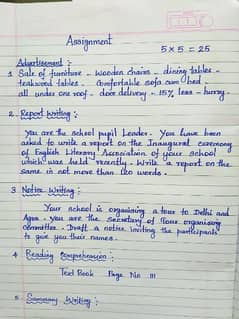 Assignment
5 x 5 = 25
Advertisement :
1 Sale of furniture - wooden chairs - dining tables -
teakwood tables - Comfortable sofa cum bed -
all under one roof - door delivery - 15% less - hurry.
2. Report Writing :
You are the school pupil Leader. You have been
asked to write a report on the Inaugural ceremony
of English Literary Association of your school
which was held recently. Write a report on the
same in not more than 120 words.
3 Notice Writing :
Your school is organising a tour to Delhi and
Agra. You are the secretary of Tour organising
Committee. Draft a notice inviting the participants
to give you their names.
4 Reading Comprehension :
Text Book Page No 111
5 Summary Writing :